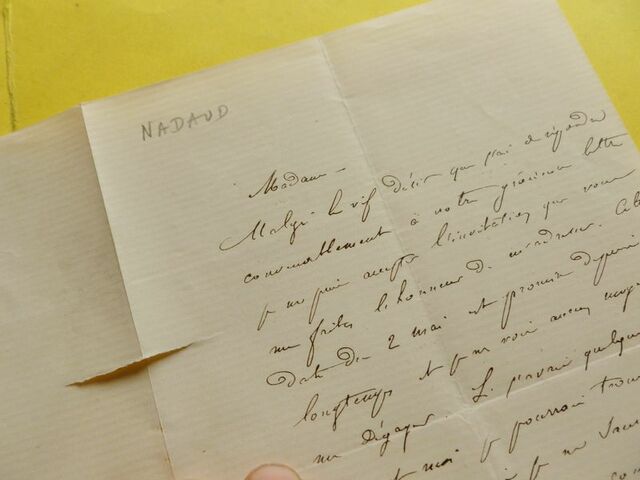 NADAUD
Madame
Malgré le vif désir que j'ai de répondre
convenablement à votre gracieuse lettre
je ne puis accepter l'invitation que vous
me faites l'honneur de m'adresser. Cette
date du 2 mai est promise depuis
longtemps et je ne vois aucun moyen
me dégager. Si pouvais quelque
mai je pourrois trou
je ne